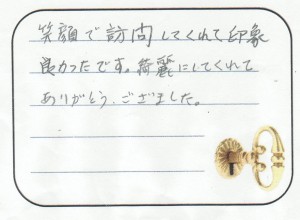 笑顔で訪問してくれて印象
良かったです。綺麗にしてくれて
ありがとう、ござました。